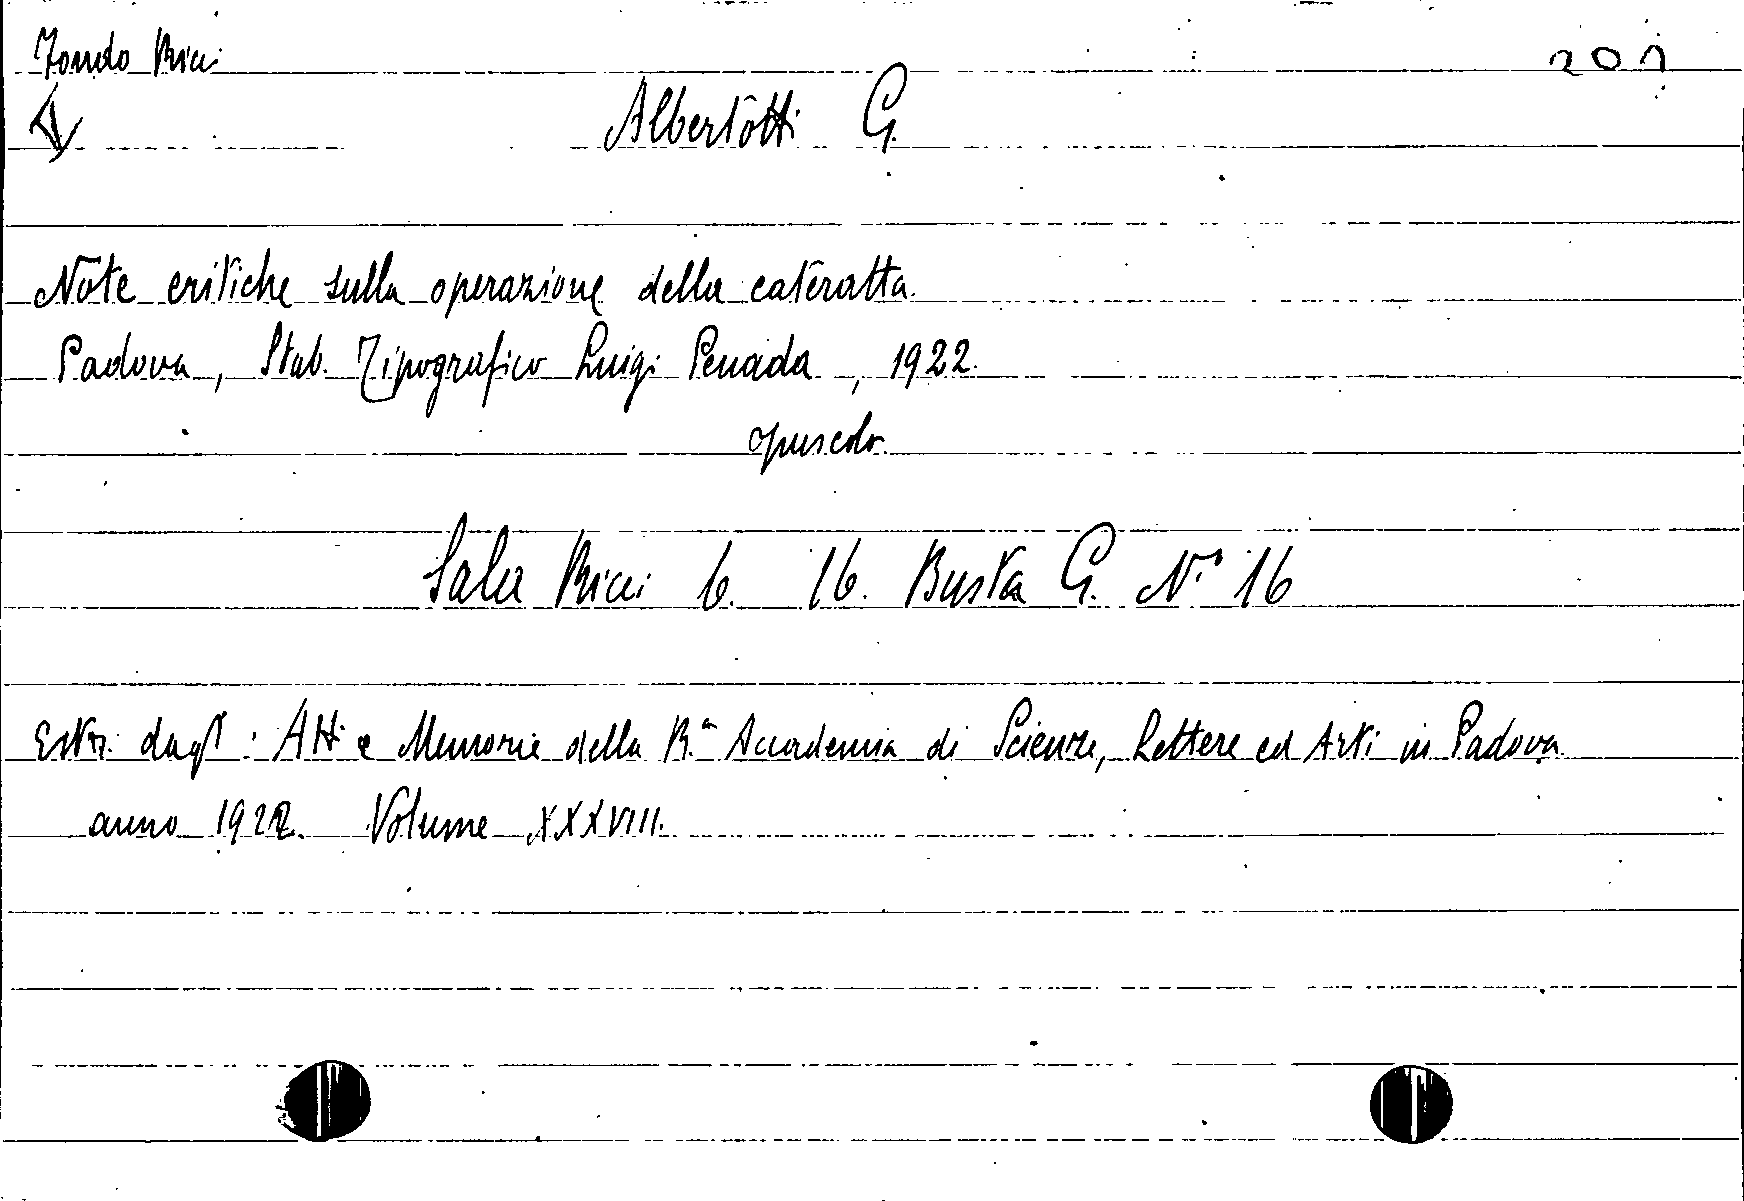 Fondo Ricci
201
Albertotti G.
Note critiche sulla operazione della cateratta.
Padova, Stab. Tipografico Luigi Penada, 1922.
opuscolo.
Sala Ricci 6. 16. Busta G. N.° 16
Estr. dagli: Atti e Memorie della R.a Accademia di Scienze, Lettere ed Arti in Padova
anno 1922. Volume XXXVIII.